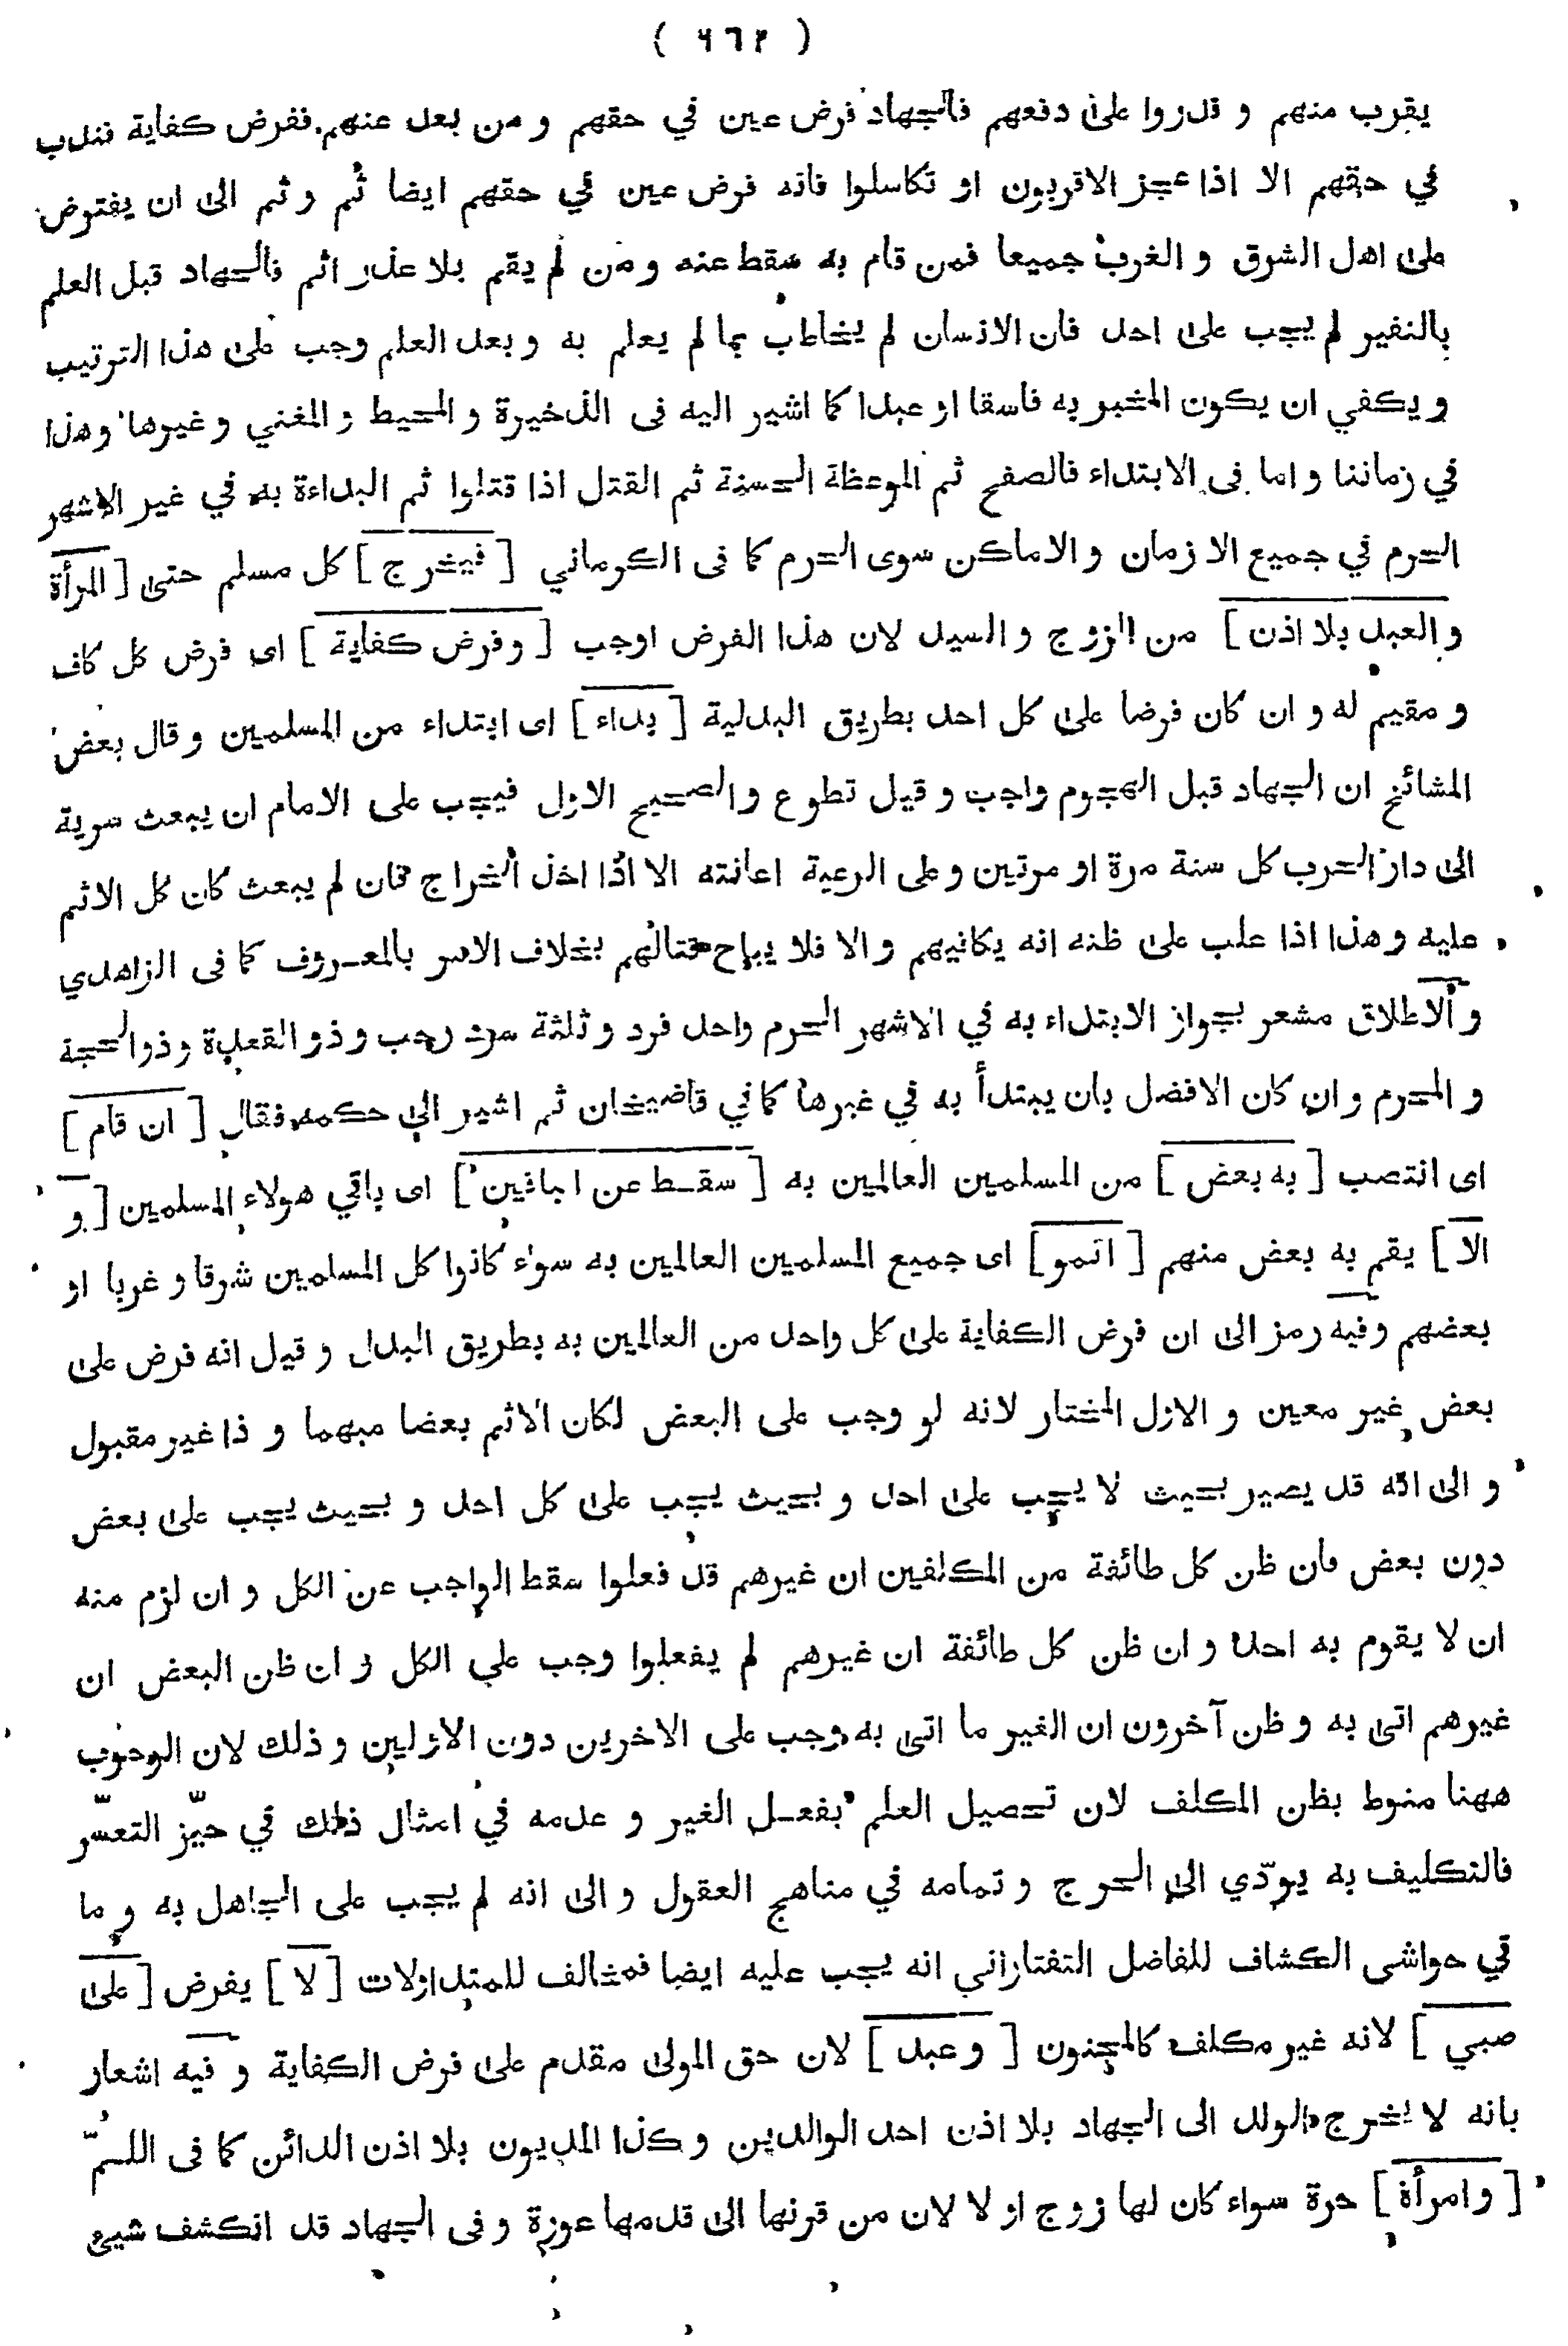 ( ٦٦٢ )
يقرب منهم و قدروا على دفعهم فالجهاد فرض عين في حقهم و من بعد عنهم ففرض كفاية فندب
في حقهم الا اذا عجز الاقربون او تكاسلوا فانه فرض عين في حقهم ايضا ثم و ثم الى ان يفترض
على اهل الشرق و الغرب جميعا فمن قام به سقط عنه و من لم يقم بلا عذر اثم فالجهاد قبل العلم
بالنفير لم يجب على احد فان الانسان لم يخاطب بما لم يعلم به و بعد العلم وجب على هذا الترتيب
و يكفي ان يكون المخبر به فاسقا او عبدا كما اشير اليه فى الذخيرة و المحيط و المغني و غيرها و هذا
في زماننا و اما فى الابتداء فالصفح ثم الموعظة الحسنة ثم القتل اذا قتلوا ثم البداءة به في غير الاشهر
الحرم في جميع الازمان و الاماكن سوى الحرم كما فى الكرماني [ فيخرج ] كل مسلم حتى [ المرأة
و العبد بلا اذن ] من الزوج و السيد لان هذا الفرض اوجب [ و فرض كفاية ] اى فرض كل كاف
و مقيم له و ان كان فرضا على كل احد بطريق البدلية [ بداء ] اى ابتداء من المسلمين و قال بعض
المشائخ ان الجهاد قبل الهجوم واجب و قيل تطوع والصحيح الاول فيجب على الامام ان يبعث سرية
الى دار الحرب كل سنة مرة او مرتين و على الرعية اعانته الا اذا اخذ الخراج فان لم يبعث كان كل الاثم
عليه و هذا اذا غلب على ظنه انه يكافيهم و الا فلا يباح قتالهم بخلاف الامر بالمعروف كما فى الزاهدي
و الاطلاق مشعر بجواز الابتداء به في الاشهر الحرم واحد فرد و ثلثة سرد رجب و ذو القعدة و ذوالحجة
و المحرم و ان كان الافضل بان يبتدأ به في غيرها كما في قاضيخان ثم اشير الى حكمه فقال [ ان قام ]
اى انتصب [ به بعض ] من المسلمين العالمين به [ سقط عن الباقين ] اى باقي هولاء المسلمين [ و
الا ] يقم به بعض منهم [ اثمو ] اى جميع المسلمين العالمين به سواء كانوا كل المسلمين شرقا و غربا او
بعضهم و فيه رمز الى ان فرض الكفاية على كل واحد من العالمين به بطريق البدل و قيل انه فرض على
بعض غير معين و الاول المختار لانه لو وجب على البعض لكان الاثم بعضا مبهما و ذا غير مقبول
و الى انه قد يصير بحيث لا يجب على احد و بحيث يجب على كل احد و بحيث يجب على بعض
دون بعض فان ظن كل طائفة من المكلفين ان غيرهم قد فعلوا سقط الواجب عن الكل و ان لزم منه
ان لا يقوم به احد و ان ظن كل طائفة ان غيرهم لم يفعلوا وجب على الكل و ان ظن البعض ان
غيرهم اتى به و ظن آخرون ان الغير ما اتى به وجب على الاخرين دون الاولين و ذلك لان الوجوب
ههنا منوط بظن المكلف لان تحصيل العلم بفعل الغير و عدمه في امثال ذلك في حيّز التعسّر
فالتكليف به يودّي الى الحرج و تمامه في مناهج العقول و الى انه لم يجب على الجاهل به و ما
في حواشى الكشاف للفاضل التفتازاني انه يجب عليه ايضا فمخالف للمتداولات [ لا ] يفرض [ على
صبي ] لانه غير مكلف كالمجنون [ و عبد ] لان حق المولى مقدم على فرض الكفاية و فيه اشعار
بانه لا يخرج الولد الى الجهاد بلا اذن احد الوالدين و كذا المديون بلا اذن الدائن كما فى اللسمّ
[ و امرأة ] حرة سواء كان لها زوج او لا لان من قرنها الى قدمها عورة و فى الجهاد قد انكشف شيئ